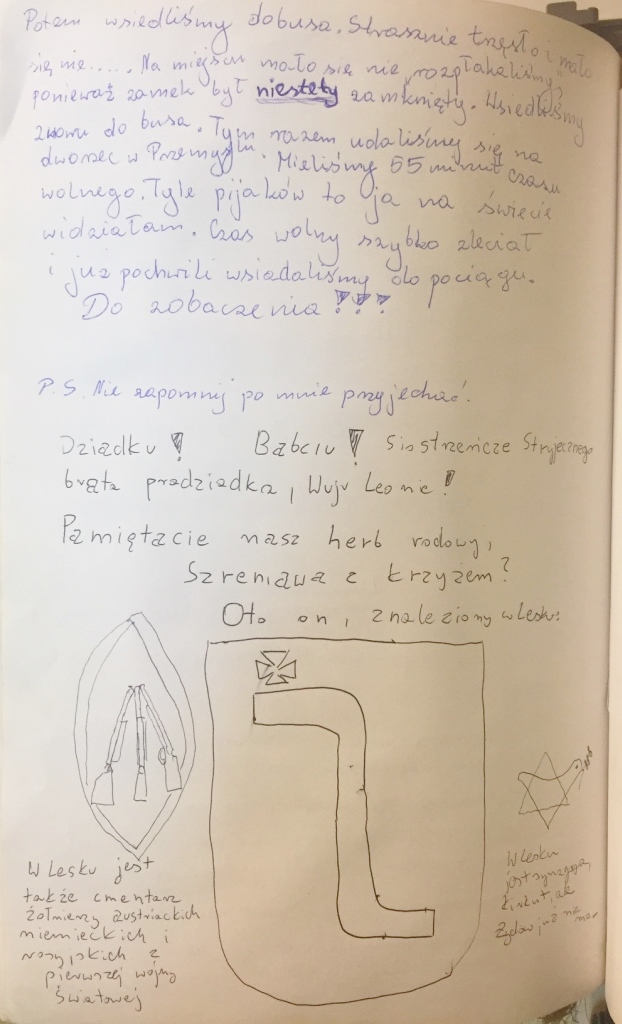 Potem wsiedliśmy dobusa. Strasznie trzęsło i mało
się nie..... Na miejscu mało się nie „rozpłakaliśmy”,
ponieważ zamek był niestety zamknięty. Wsiedliśmy
znowu do busa. Tym razem udaliśmy się na
dworzec w Przemyślu. Mieliśmy 55 minut czasu
wolnego. Tyle pijaków to ja na świecie
widziałam. Czas wolny szybko zleciał
i już pochwili wsiadaliśmy do pociągu.
Do zobaczenia!!!
P.S. Nie zapomnij po mnie przyjechać.
Dziadku! Babciu! Siostrzeńcze Stryjecznego
brata pradziadka, Wuju Leonie!
Pamiętacie nasz herb rodowy,
Szreniawa z krzyżem?
Oto on, znaleziony w Lesku:
W Lesku jest
także cmentarz
żołnierzy austriackich
niemieckich i
rosyjskich z
pierwszej wojny
światowej
W Lesku
jest synagoga,
kirkut, ale
Żydów już nie ma